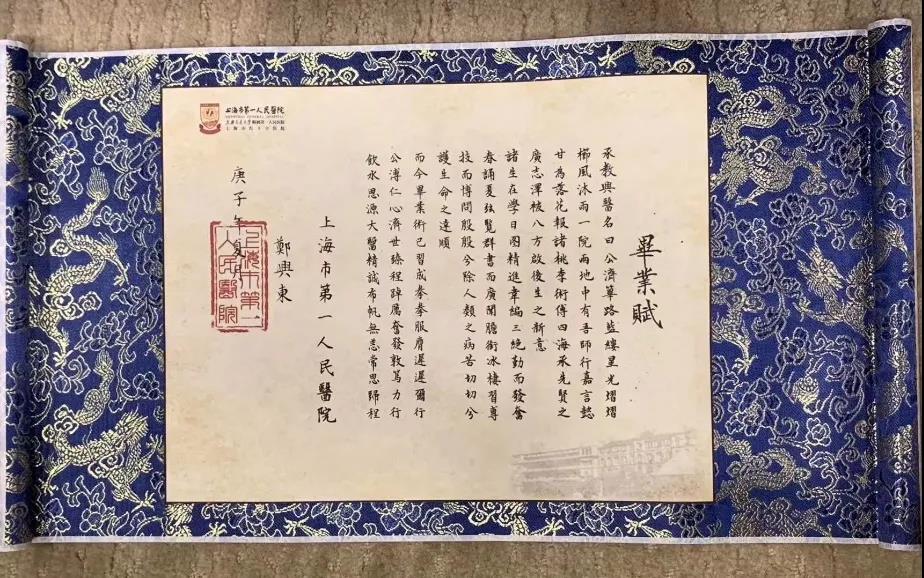 畢業賦
承教興醫名曰公濟篳路藍縷星光熠熠
櫛風沐雨一院兩地中有吾師行嘉言懿
甘為落花報諸桃李術傅四海承先賢之
廣志澤被八方啟後生之新意
諸生在學日圖精進韋編三絕勤而發奮
春誦夏弦覽群書而廣聞膽銜冰棲習專
技而博問殷殷兮除人類之病苦切切兮
護生命之達順
而今畢業術已習成拳拳服膺遲遲爾行
公溥仁心濟世臻程踔厲奮發敦篤力行
飲水思源大醫精誠布帆無恙常思歸程
上海市第一人民醫院
鄭興東
庚子年夏
上海市第一
人民醫院
上海市第一人民醫院
SHANGHAI GENERAL HOSPITAL
上海交通大學附屬第一人民醫院